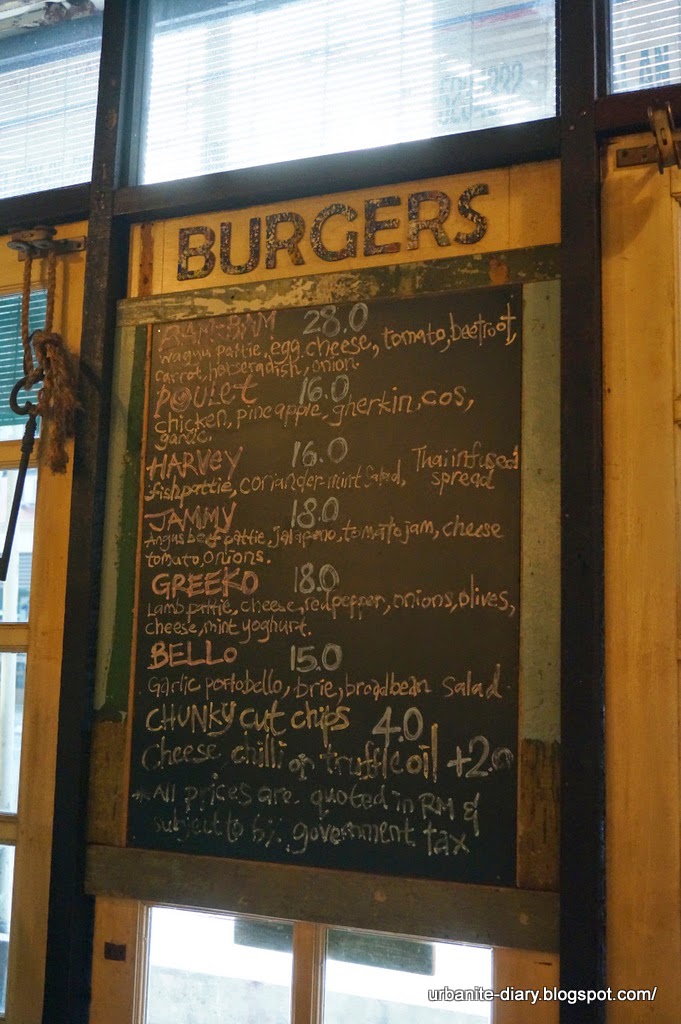 BURGERS
28.0
Wagyu Pattie, egg, cheese, tomato, beetroot,
carrot, horseradish, onion.
POULET 16.0
chicken, pineapple, gherkin, cos,
garlic.
HARVEY 16.0
fish pattie, coriander-mint Salad, Thai infused
spread
JAMMY 18.0
Angus beef pattie, jalapeno, tomato jam, cheese
tomato, onions.
GREEKO 18.0
Lamb pattie, cheese, red pepper, onions, olives,
cheese, mint yoghurt.
BELLO 15.0
Garlic portobello, brie, broadbean Salad.
CHUNKY cut chips 4.0
Cheese, chilli or truffle oil +2.0
*All prices are quoted in RM &
subject to 6% government tax
urbanite-diary.blogspot.com/